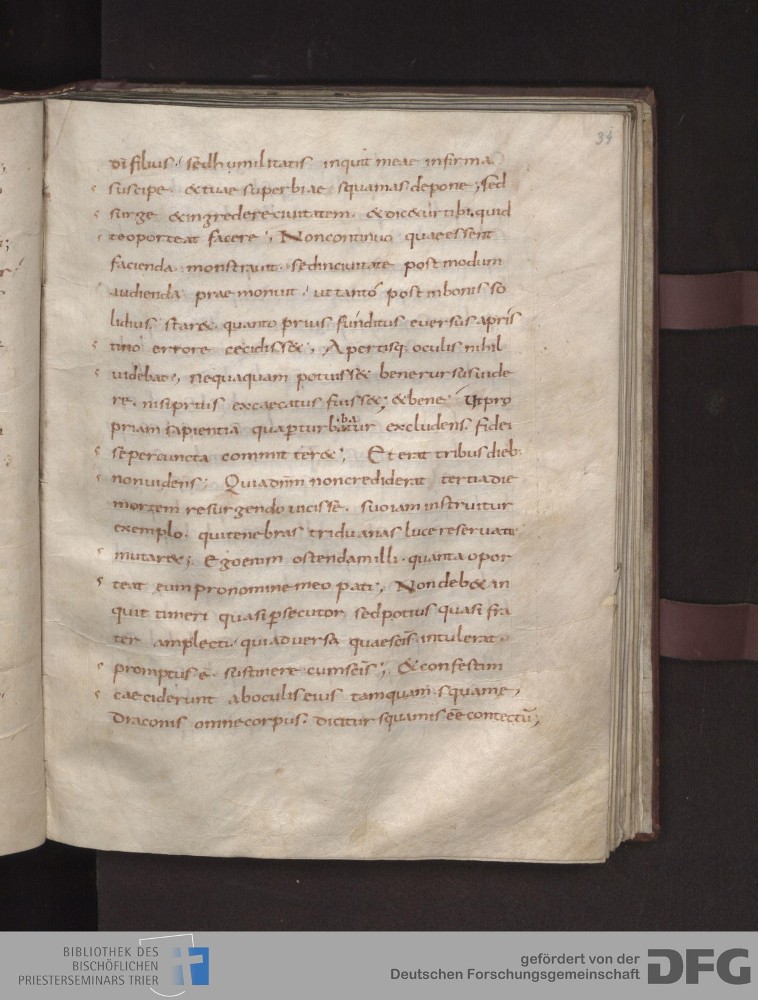 34
dī filius. sedhumilitatis inquit meae infirma
suscipe &tuae superbiae squamas depone; sed
surge &ingrederecivitatem. &dic&urtibi quid
teoporteat facere; Noncontinuo quaeessent
facienda monstravit. sedincivitate postmodum
audienda praemonuit. uttantó post inbonis so
lidius star&. quanto prius funditus eversus apris
tino errore cecidiss&; Apertisq. oculis nihil
videbat; nequaquam potuiss& bene rursusvide
re. nisi prius excaecatus fuiss&; &bene Ut pro
priam sapientiā qua pturbabatur excludens. fidei
sepercuncta committer&; Et erat tribus dieb.
nonvidens; Quia dnm noncrediderat tertiadie
mortem resurgendo vicisse. suoiam instruitur
exemplo. quitenebras triduanas luce reservata
mutar&; Egoenim ostendam illi. quanta opor
teat eum pronomine meo pati; Non deb& an
quit timeri quasi psecutor sed potius quasi fra
ter amplecti. quia adversa quaescis intulerat.
promptus ē. sustinere cumscis; &confestim
caeciderunt aboculis eius tamquam squame,
Draconis omne corpus. dicitur squamis eē contectū;
BIBLIOTHEK DES
BISCHÖFLICHEN
PRIESTERSEMINARS TRIER
gefördert von der
Deutschen Forschungsgemeinschaft
DFG